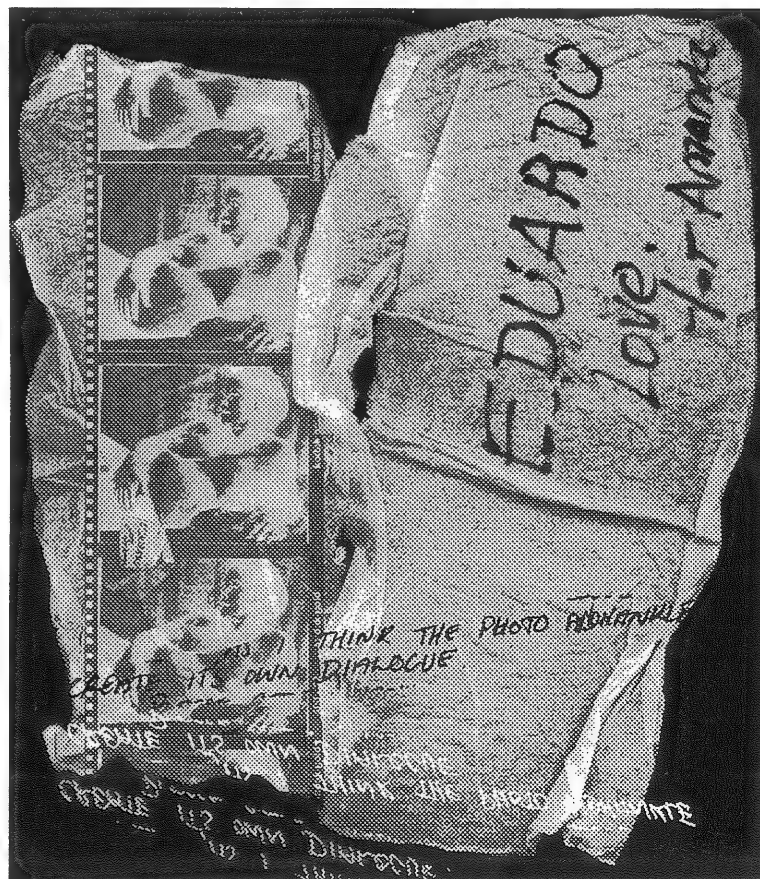 EDUARDO
love.
for Amanda
I THINK THE PHOTO
CREATE ITS OWN DIALOGUE
CREATE ITS OWN DIALOGUE
THINK THE PHOTO
CREATE ITS OWN DIALOGUE.